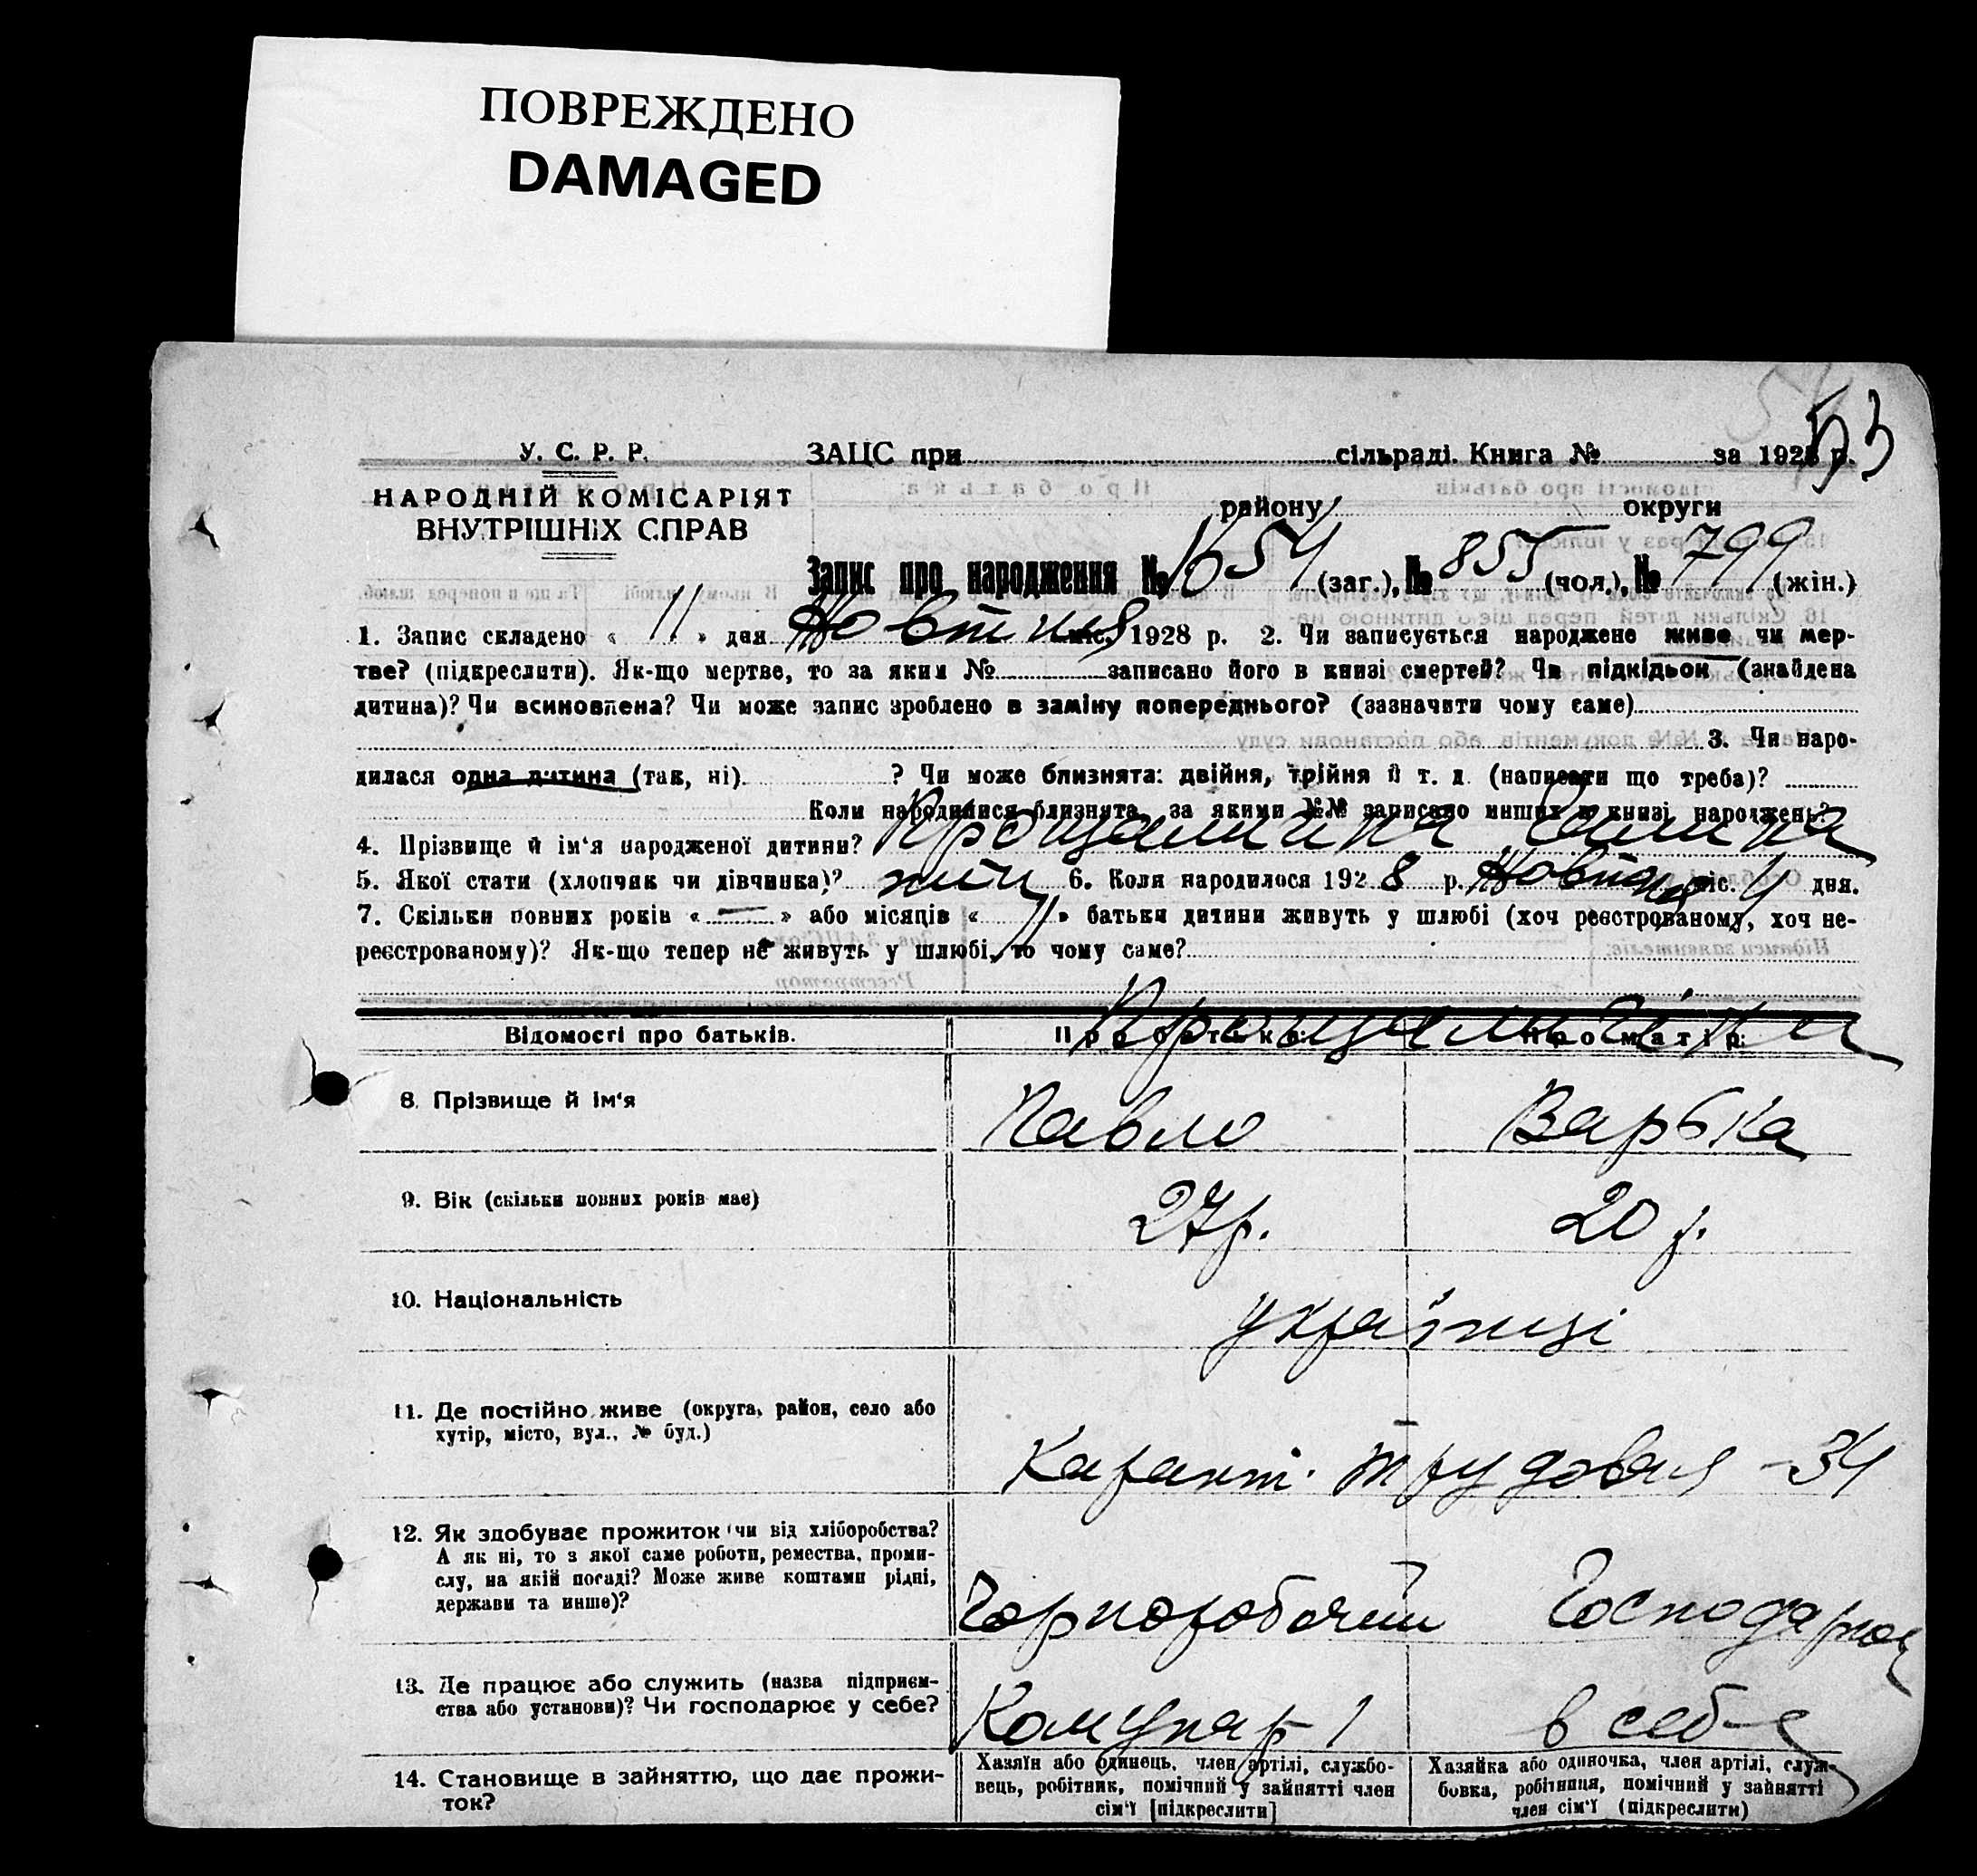 ПОВРЕЖДЕНО
DAMAGED
53
У. С. Р. Р.
НАРОДНІЙ КОМІСАРІЯТ
ВНУТРІШНІХ СПРАВ
ЗАЦС при сільраді. Книга № за 1928 р.
району округи
Запис про народження № 1654 (заг.), № 855 (чол.), № 799 (жін.)
1. Запис складено « 11 » дня Жовтня міс. 1928 р. 2. Чи записується народжене живе чи мер-
тве? (підкреслити). Як-що мертве, то за яким № записано його в книзі смертей? Чи підкідьок (знайдена
дитина)? Чи всиновлена? Чи може запис зроблено в заміну попереднього? (зазначити чому саме)
3. Чи наро-
дилася одна дитина (так, ні) ? Чи може близнята: двійня, трійня й т. д. (написати що треба)?
Коли народилися близнята, за якими №№ записано инших в книзі народжень?
4. Прізвище й ім‘я народженої дитини?
5. Якої стати (хлопчик чи дівчинка)? 6. Коли народилося 1928 р. Жовтня міс. 4 дня.
7. Скільки повних років « — » або місяців « 11 » батьки дитини живуть у шлюбі (хоч реєстрованому, хоч не-
реєстрованому)? Як-що тепер не живуть у шлюбі, то чому саме?
Відомості про батьків. Про батька: Про матір:
8. Прізвище й ім‘я
Павло Варька
9. Вік (скільки повних років має)
27 р. 20 р.
10. Національність
українці
11. Де постійно живе (округа, район, село або
хутір, місто, вул., № буд.)
трудовая - 34
12. Як здобуває прожиток чи від хліборобства?
А як ні, то з якої саме роботи, ремества, проми-
слу, на якій посаді? Може живе коштами рідні,
держави та инше)?
Чорноробочий
13. Де працює або служить (назва підприєм-
ства або установи)? Чи господарює у себе?
Комунар - 1 в себе
14. Становище в зайняттю, що дає прожи-
ток?
Хазяїн або одинець, член артілі, службо-
вець, робітник, помічний у зайнятті член
сім‘ї [підкреслити]
Хазяйка або одиночка, член артілі, служ-
бовка, робітниця, помічний у зайнятті
член сім‘ї (підкреслити)